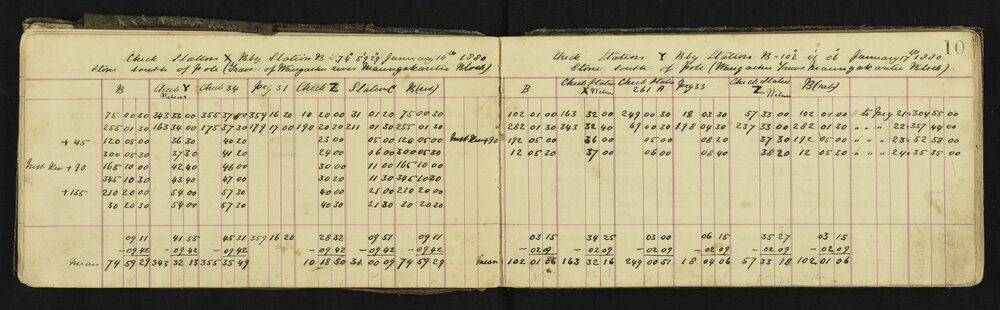 Check Station X Bby Station B = 74° 59' 29" January 16th 1880
Stone south of Pole (Trav of Waugaehu river Maungakaretu Block)
B Check Y Check 34 Peg 31 Check Z Station C B(ret)
75 00 00 343 33 00 355 37 00 359 16 20 10 20 00 31 01 20 75 00 30
255 01 30 163 34 00 175 37 30 179 17 00 190 20 30 211 01 30 255 01 30
+ 45 120 05 00 36 30 40 20 23 00 05 00 120 05 00
300 05 30 37 30 41 20 24 00 06 00 300 05 30
Inst Rev + 90 165 10 00 42 40 46 00 30 00 11 00 165 10 00
345 10 30 43 40 47 00 30 20 11 30 345 10 30
+ 135 210 20 00 54 00 57 30 40 00 21 00 210 20 00
30 20 30 54 00 57 30 40 30 21 30 30 20 30
09 11 41 55 45 31 359 16 20 28 32 09 51 09 11
- 09 42 - 09 42 - 09 42 - 09 42 - 09 42 - 09 42
Mean 74 59 29 343 32 13 355 35 49 10 18 50 31 00 09 74 59 29
10
Check Station Y Bby Station B - 102° 01' 06" January 17th 1880
Stone south of Pole (Waugaehu River Maungakaretu Block)
B Check Station X Return Check Station 261 A Peg 33 Check Station Z Return B(ret)
102 01 00 163 32 00 249 00 30 18 03 30 57 33 00 102 01 00 to Peg 21 = 304 55 00
282 01 30 343 32 40 69 00 30 198 04 30 237 33 00 282 01 30 " " " 22 = 357 44 00
Inst Rev + 90 192 05 00 36 00 05 00 08 20 37 30 192 05 00 " " " 23 = 52 53 00
12 05 30 37 00 06 00 08 40 38 20 12 05 30 " " " 24 = 35 35 00
03 15 34 25 03 00 06 15 35 27 03 15
- 02 09 - 02 09 - 02 09 - 02 09 - 02 09 - 02 09
Mean 102 01 06 163 32 16 249 00 51 18 04 06 57 33 18 102 01 06